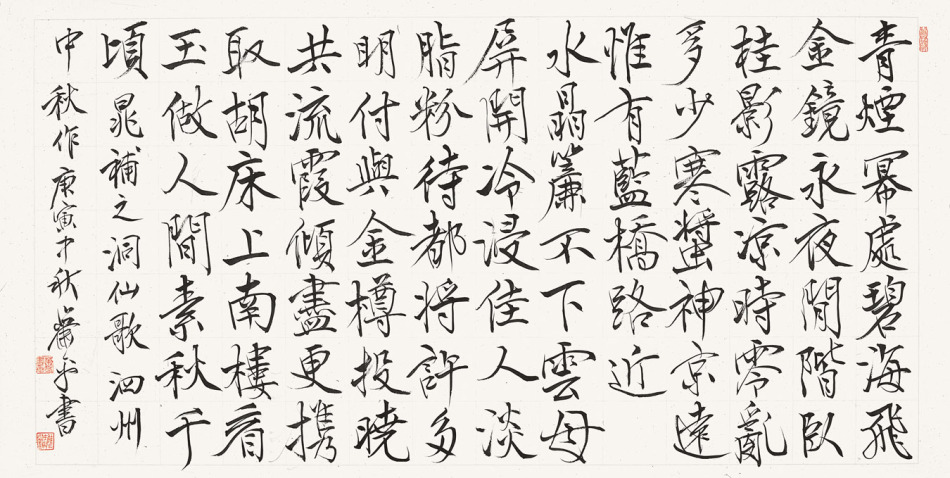 青煙冪處碧海飛
金鏡永夜閒階臥
桂影露涼時零亂
多少寒螿神京遠
惟有藍橋路近
水晶簾不下雲母
屏開冷浸佳人淡
脂粉待都將許多
明付與金樽投曉
共流霞傾盡更携
取胡床上南樓看
玉做人間素秋千
頃 晁補之洞仙歌泗州
中秋作 庚寅中秋 書